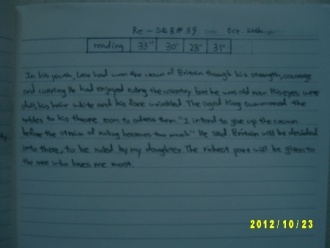 Oct. 24th
reading 33" 30" 28" 31"
In his youth, Lear had won the crown of Britain though his strength, courage
and cunning. He had enjoyed ruling the country, but he was old now. His eyes were
dull, his hair white and his face wrinkled. The aged King summoned the
nobles to his throne room to address them. "I intend to give up the crown
before the strain of ruling becomes too much." He said. Britain will be devided
into three, to be ruled by my daughters. The richest part will be given to
the one who loves me most.
2012/10/23